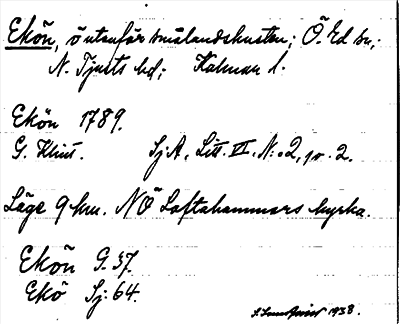 Ekön, ö utanför smålandskusten; Ö. Ed sn,
N. Tjusts hd; Kalmar l.
Ekön 1789.
G. Klint. SjA, Litt. VI. N:o 2, pr. 2.
Läge 9 km. NÖ Loftahammars kyrka.
Ekön G. 37.
Ekö Sj: 64.
1938.